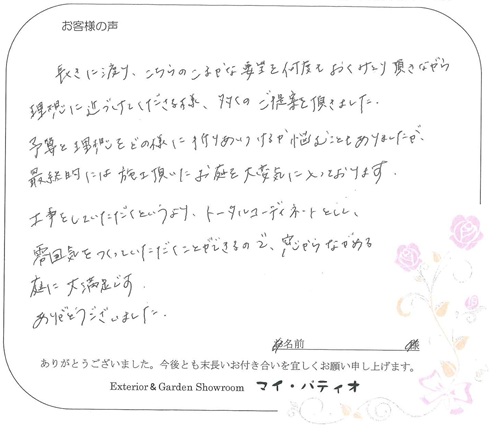 お客様の声
長きに渡り、こちらのこまかな要望を何度もおくみとり頂きながら
理想に近づけてくださる様、多くのご提案を頂きました。
予算と理想をどの様に折りあいつけるか悩むこともありましたが、
最終的には施工頂いたお庭を大変気に入っております。
工事をしていただくというより、トータルコーディネートとし、
雰囲気をつくっていただくことができるので、窓からながめる
庭に大満足です。
ありがとうございました。
お名前 様
ありがとうございました。今後とも末長いお付き合いを宜しくお願い申し上げます。
Exterior & Garden Showroom マイ・パティオ